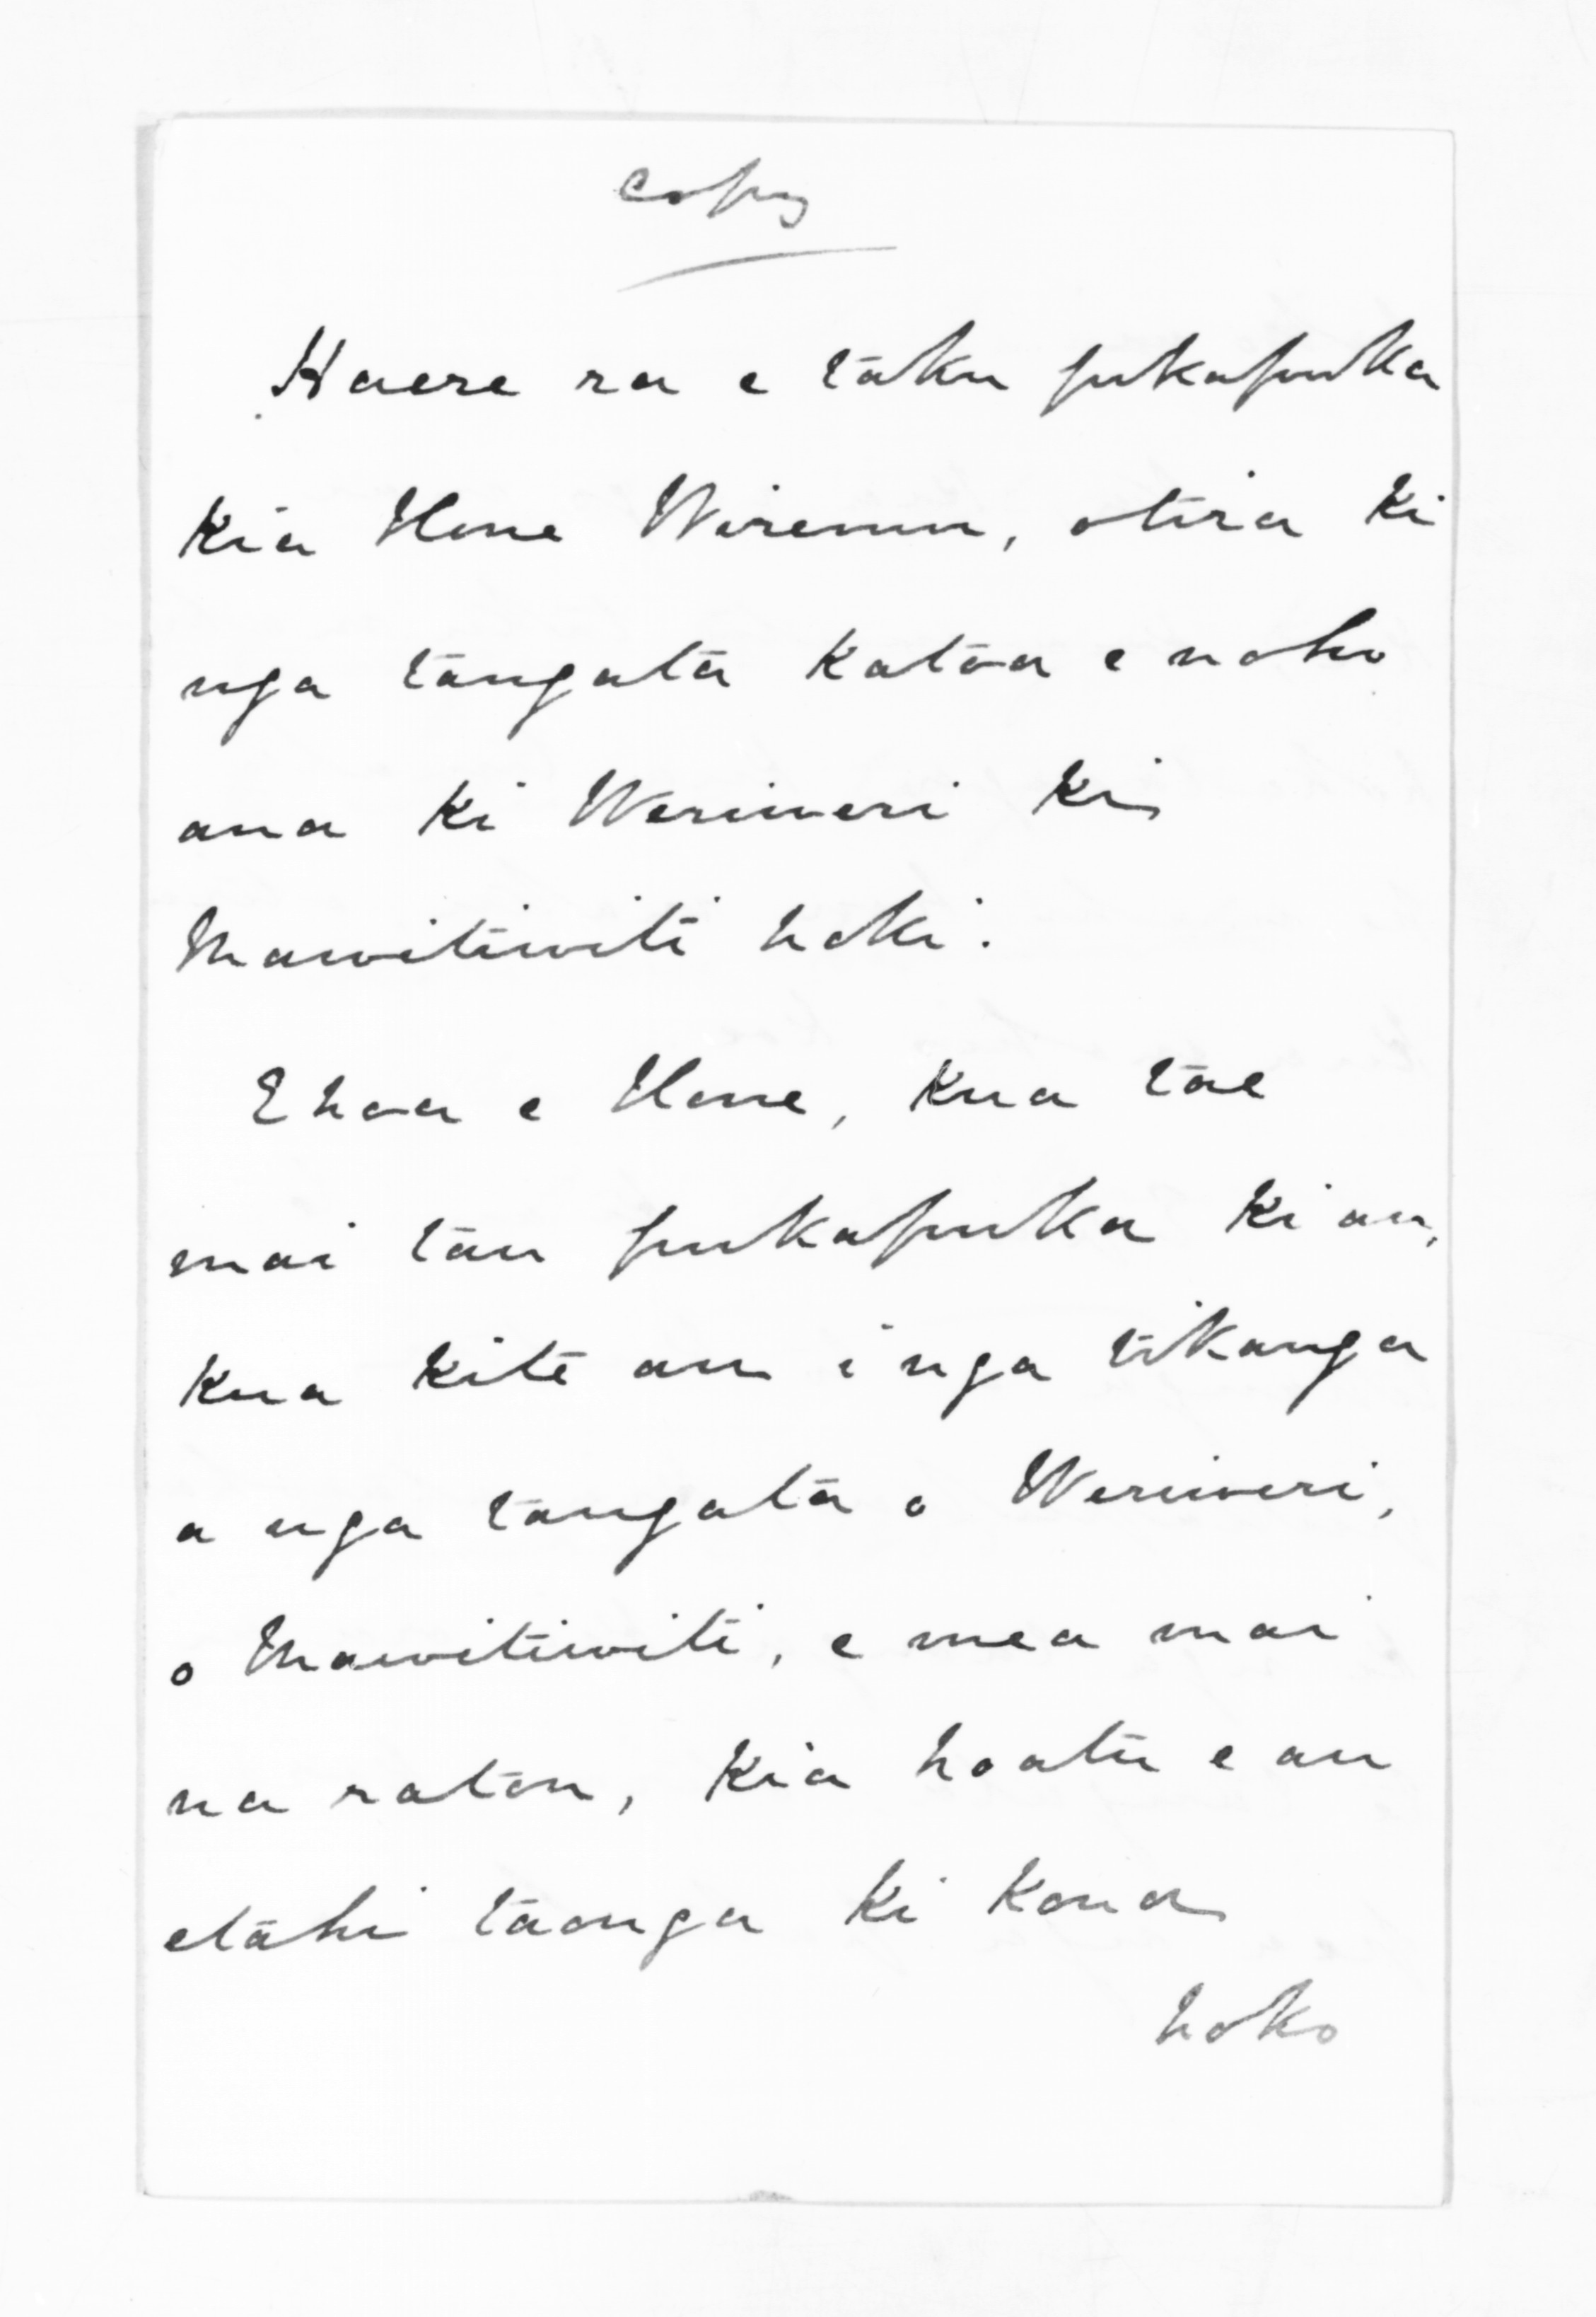 copy
Haere ra e taku pukapuka
kia Hone Wiremu, otira ki
nga tangata katoa e noho
ana ki Weriweri ki
Mawitiwiti hoki.
E hoa e Hone, kua tae
mai tau pukapuka ki au,
kua kite au i nga tikanga
a nga tangata o Weriweri,
o Mawitiwiti, e mea mai
na ratou, kia hoatu e au
etahi taonga ki kona
hoko